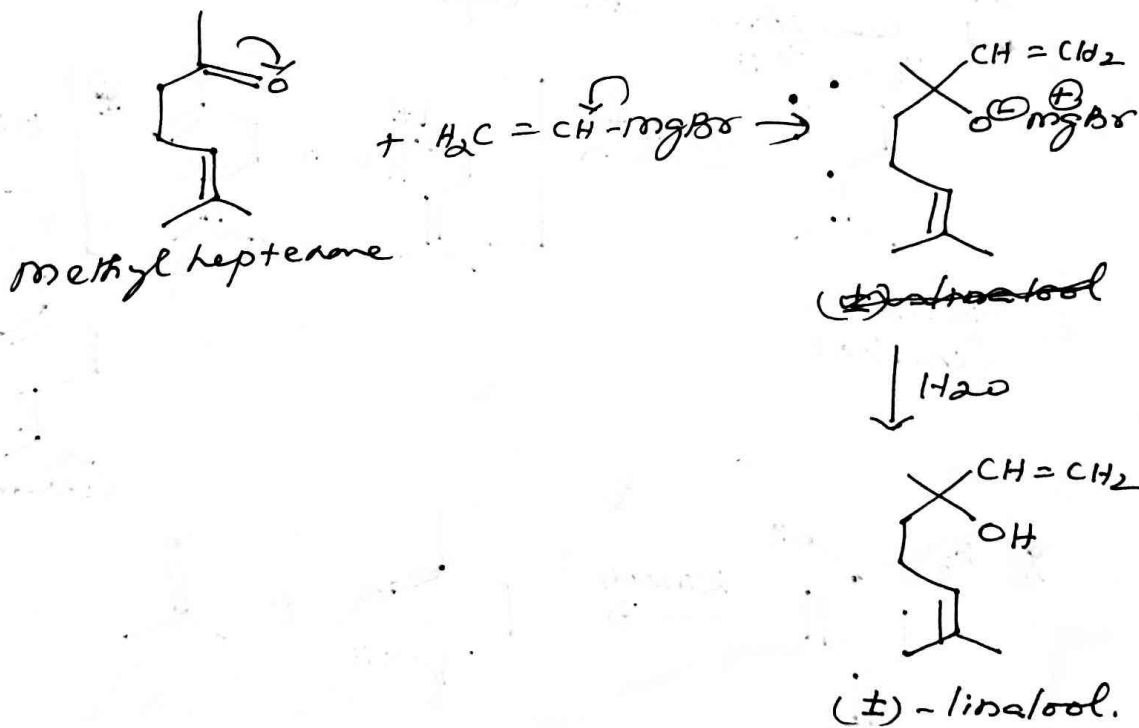 O
+ H₂C = CH-MgBr →
CH = CH₂
O⊖ ⊕MgBr
Methyl heptenone
(±)-linalool
H₂O
CH = CH₂
OH
(±) - linalool.